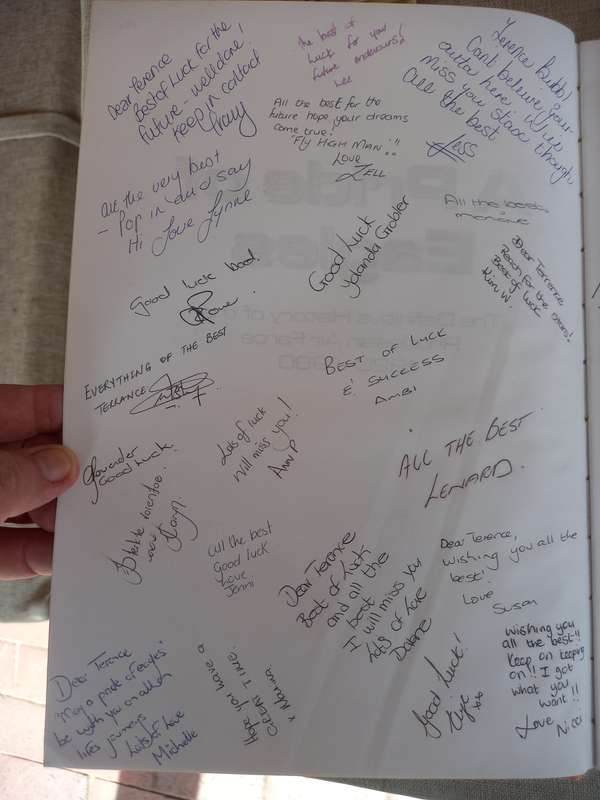 Dear Terence
Best of Luck for the
future - well done!
Keep in contact
Tracy
The best of
Luck for your
future endeavours!
Lee
Terence
Cant believe your
outta here! will
miss you though
all the best
Jess
All the best for the
future hope your dreams
come true!
"FLY HIGH MAN"!!
LOVE
ZELL
All the very best
- Pop in and say
Hi Love Lynne
Good Luck
Yolanda Grobler
All the best
Monique
Dear Terrence
Reach for the stars!
Best of luck
Kim W.
Good luck bod.
EVERYTHING OF THE BEST
TERRANCE
BEST OF LUCK
& SUCCESS
AMBI
Lots of luck
Will miss you!
Ann P
ALL THE BEST
LENARD.
Good luck.
All the best
Good luck
Love
Jenni
Dear Terence
Best of luck
and all the
best
I will miss you
Lots of love
Dear Terence,
Wishing you all the
best!
Love
Susan
Dear Terence
"May a pride of eagles"
be with you on all
lifes journeys
Lots of love
Michelle
Hope you have a
GREAT TIME.
Good Luck!
xoxo
Wishing you
all the best!!
Keep on keeping
on!! I got
what you
want!!
Love
A Pride of
Eagles
The Definitive History of the
Rhodesian Air Force